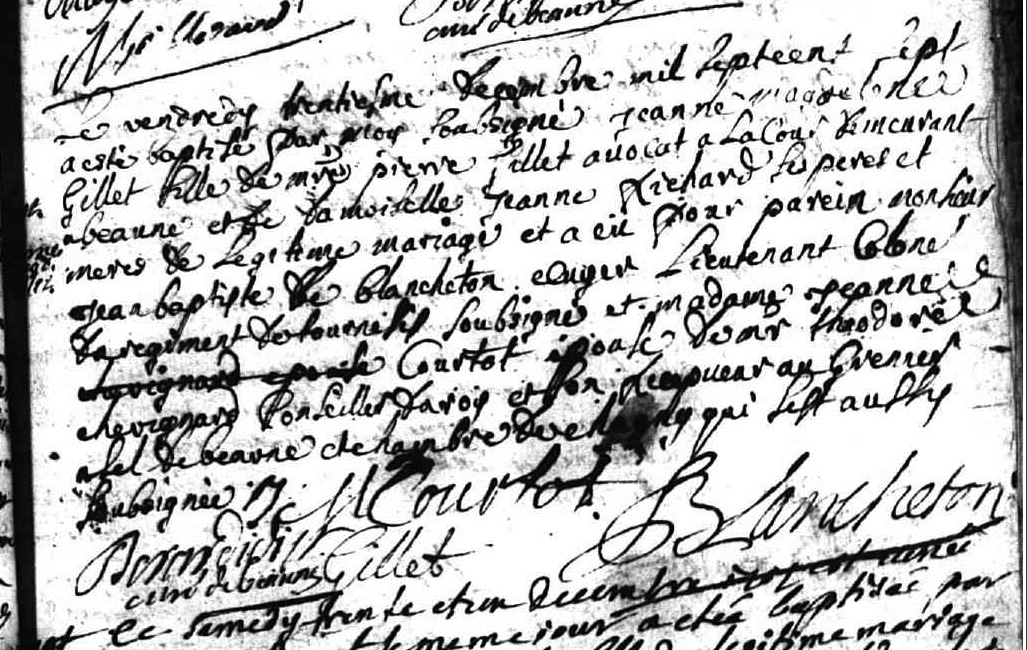 curé de beaune
Le vendredy trentiesme decembre mil septcent sept
a esté baptisé par moy soubsigné jeanne magdelene
Gillet fille de mre pierre Gillet avocat a La Cour demeurant
abeaune et de damoiselle jeanne Richard ses peres et
meres de Legitime mariage et a eü pour parein monsieur
jean baptiste de blancheton escuyer Lieutenant Colonel
du regiment de tournesis soubsigné et madame jeanne
chevignard epouse Courtot epouse de mr theodore
chevignard Conseiller du roy et son receveur au Grenier
a sel de beaune et chambre de chagny qui sest aussy
soubsignée
M Courtot Blancheton
curé de beaune Gillet
Le samedy trente et un decembre
le meme jour a eté baptisée par
legitime mariage